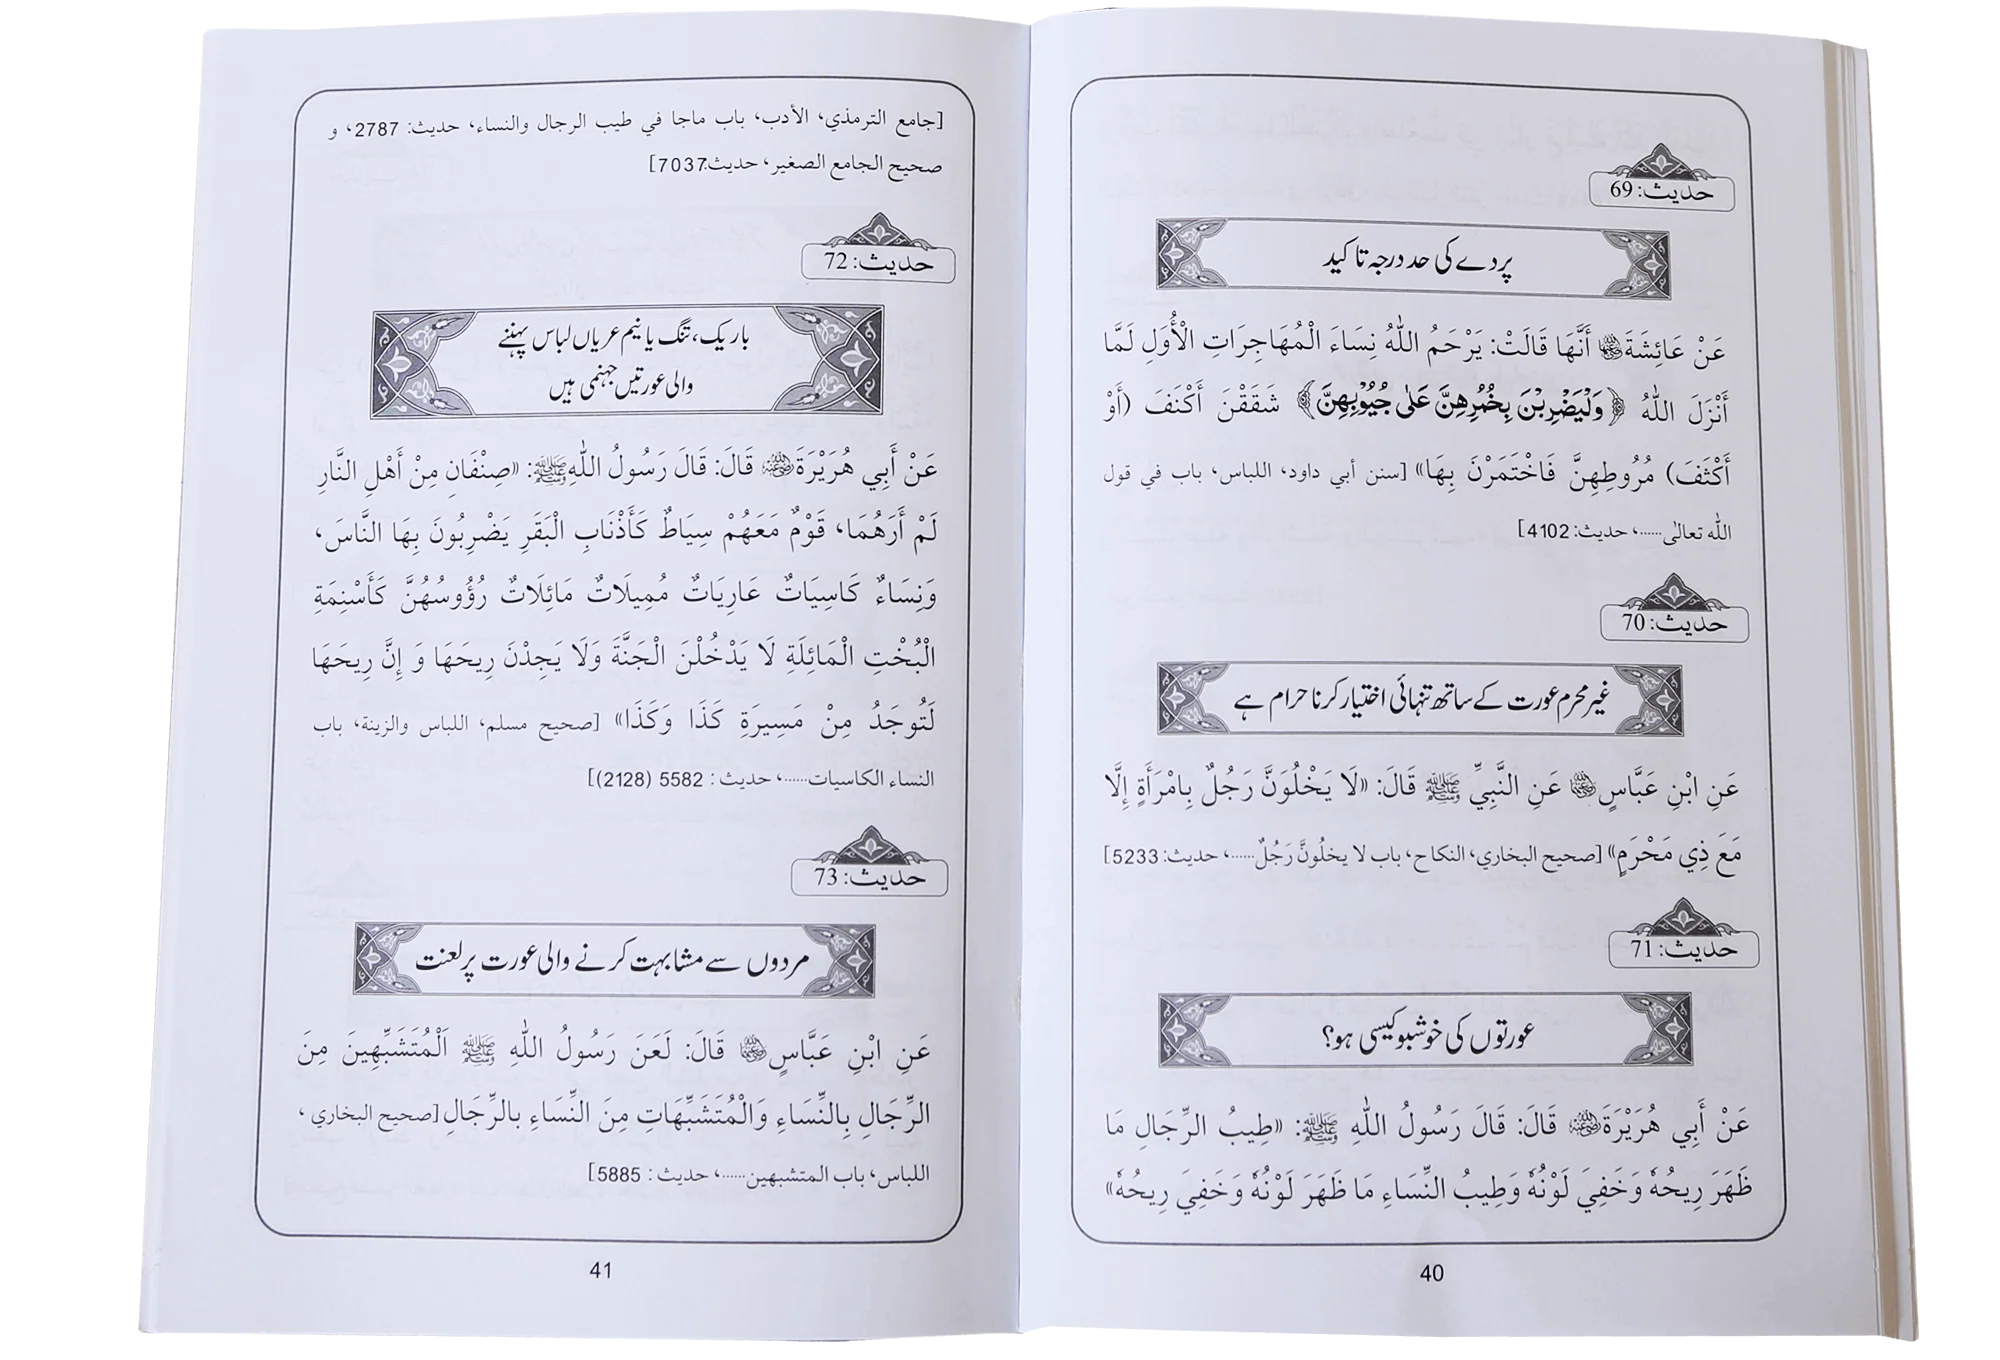 حديث: 69
پردے کی حد درجہ تاکید
عَنْ عَائِشَةَ رضي الله عنها أَنَّهَا قَالَتْ: يَرْحَمُ اللّٰهُ نِسَاءَ الْمُهَاجِرَاتِ الْأُوَلِ لَمَّا
أَنْزَلَ اللّٰهُ ﴿وَلْيَضْرِبْنَ بِخُمُرِهِنَّ عَلٰى جُيُوْبِهِنَّ﴾ شَقَقْنَ أَكْنَفَ (أَوْ
أَكْثَفَ) مُرُوطِهِنَّ فَاخْتَمَرْنَ بِهَا» [سنن أبي داود، اللباس، باب في قول
اللّٰه تعالى......، حديث: 4102]
حديث: 70
غیر محرم عورت کے ساتھ تنہائی اختیار کرنا حرام ہے
عَنِ ابْنِ عَبَّاسٍ رضي الله عنهما عَنِ النَّبِيِّ ﷺ قَالَ: «لَا يَخْلُوَنَّ رَجُلٌ بِامْرَأَةٍ إِلَّا
مَعَ ذِي مَحْرَمٍ» [صحيح البخاري، النكاح، باب لا يخلُونَّ رَجُلٌ......، حديث: 5233]
حديث: 71
عورتوں کی خوشبو کیسی ہو؟
عَنْ أَبِي هُرَيْرَةَ رضي الله عنه قَالَ: قَالَ رَسُولُ اللّٰهِ ﷺ: «طِيبُ الرِّجَالِ مَا
ظَهَرَ رِيحُهٗ وَخَفِيَ لَوْنُهٗ وَطِيبُ النِّسَاءِ مَا ظَهَرَ لَوْنُهٗ وَخَفِيَ رِيحُهٗ»
40
[جامع الترمذي، الأدب، باب ماجا في طيب الرجال والنساء، حديث: 2787، و
صحيح الجامع الصغير، حديث:7037]
حديث: 72
باریک، تنگ یا نیم عریاں لباس پہننے
والی عورتیں جہنمی ہیں
عَنْ أَبِي هُرَيْرَةَ رضي الله عنه قَالَ: قَالَ رَسُولُ اللّٰهِ ﷺ: «صِنْفَانِ مِنْ أَهْلِ النَّارِ
لَمْ أَرَهُمَا، قَوْمٌ مَعَهُمْ سِيَاطٌ كَأَذْنَابِ الْبَقَرِ يَضْرِبُونَ بِهَا النَّاسَ،
وَنِسَاءٌ كَاسِيَاتٌ عَارِيَاتٌ مُمِيلَاتٌ مَائِلَاتٌ رُؤُوسُهُنَّ كَأَسْنِمَةِ
الْبُخْتِ الْمَائِلَةِ لَا يَدْخُلْنَ الْجَنَّةَ وَلَا يَجِدْنَ رِيحَهَا وَ إِنَّ رِيحَهَا
لَتُوجَدُ مِنْ مَسِيرَةِ كَذَا وَكَذَا» [صحيح مسلم، اللباس والزينة، باب
النساء الكاسيات......، حديث : 5582 (2128)]
حديث: 73
مردوں سے مشابہت کرنے والی عورت پر لعنت
عَنِ ابْنِ عَبَّاسٍ رضي الله عنهما قَالَ: لَعَنَ رَسُولُ اللّٰهِ ﷺ اَلْمُتَشَبِّهِينَ مِنَ
الرِّجَالِ بِالنِّسَاءِ وَالْمُتَشَبِّهَاتِ مِنَ النِّسَاءِ بالرِّجَالِ [صحيح البخاري ،
اللباس، باب المتشبهين......، حديث : 5885]
41